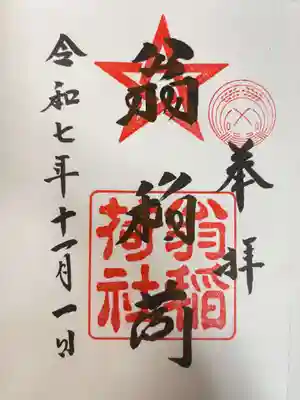 奉拝
翁稲荷
翁稲
荷社
令和七年十一月一日